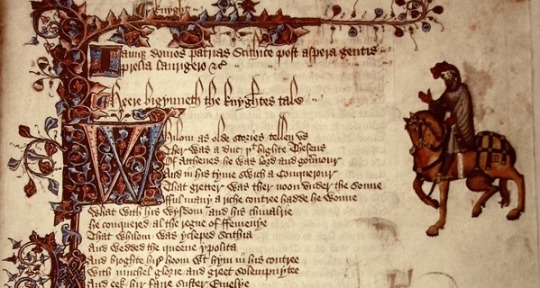 knyght
Iamque domos patrias Scithice post aspera gentis
prelia laurigero &c
Heere bigynneth the knyghtes tale
Whilom as olde stories tellen vs
Ther was a duc þt highte Theseus
Of Atthenes he was lord and gouernour
And in his tyme swich a Conquerour
That gretter was ther noon vnder the sonne
fful many a riche contree hadde he wonne
What with his wysdom and his chiualrie
he conquered al the regne of ffemenye
That whilom was ycleped Scithia
And wedded the queene ypolita
And broghte hire hoom with hym in his contree
With muchel glorie and greet solempnytee
And eek hir faire suster Emelye